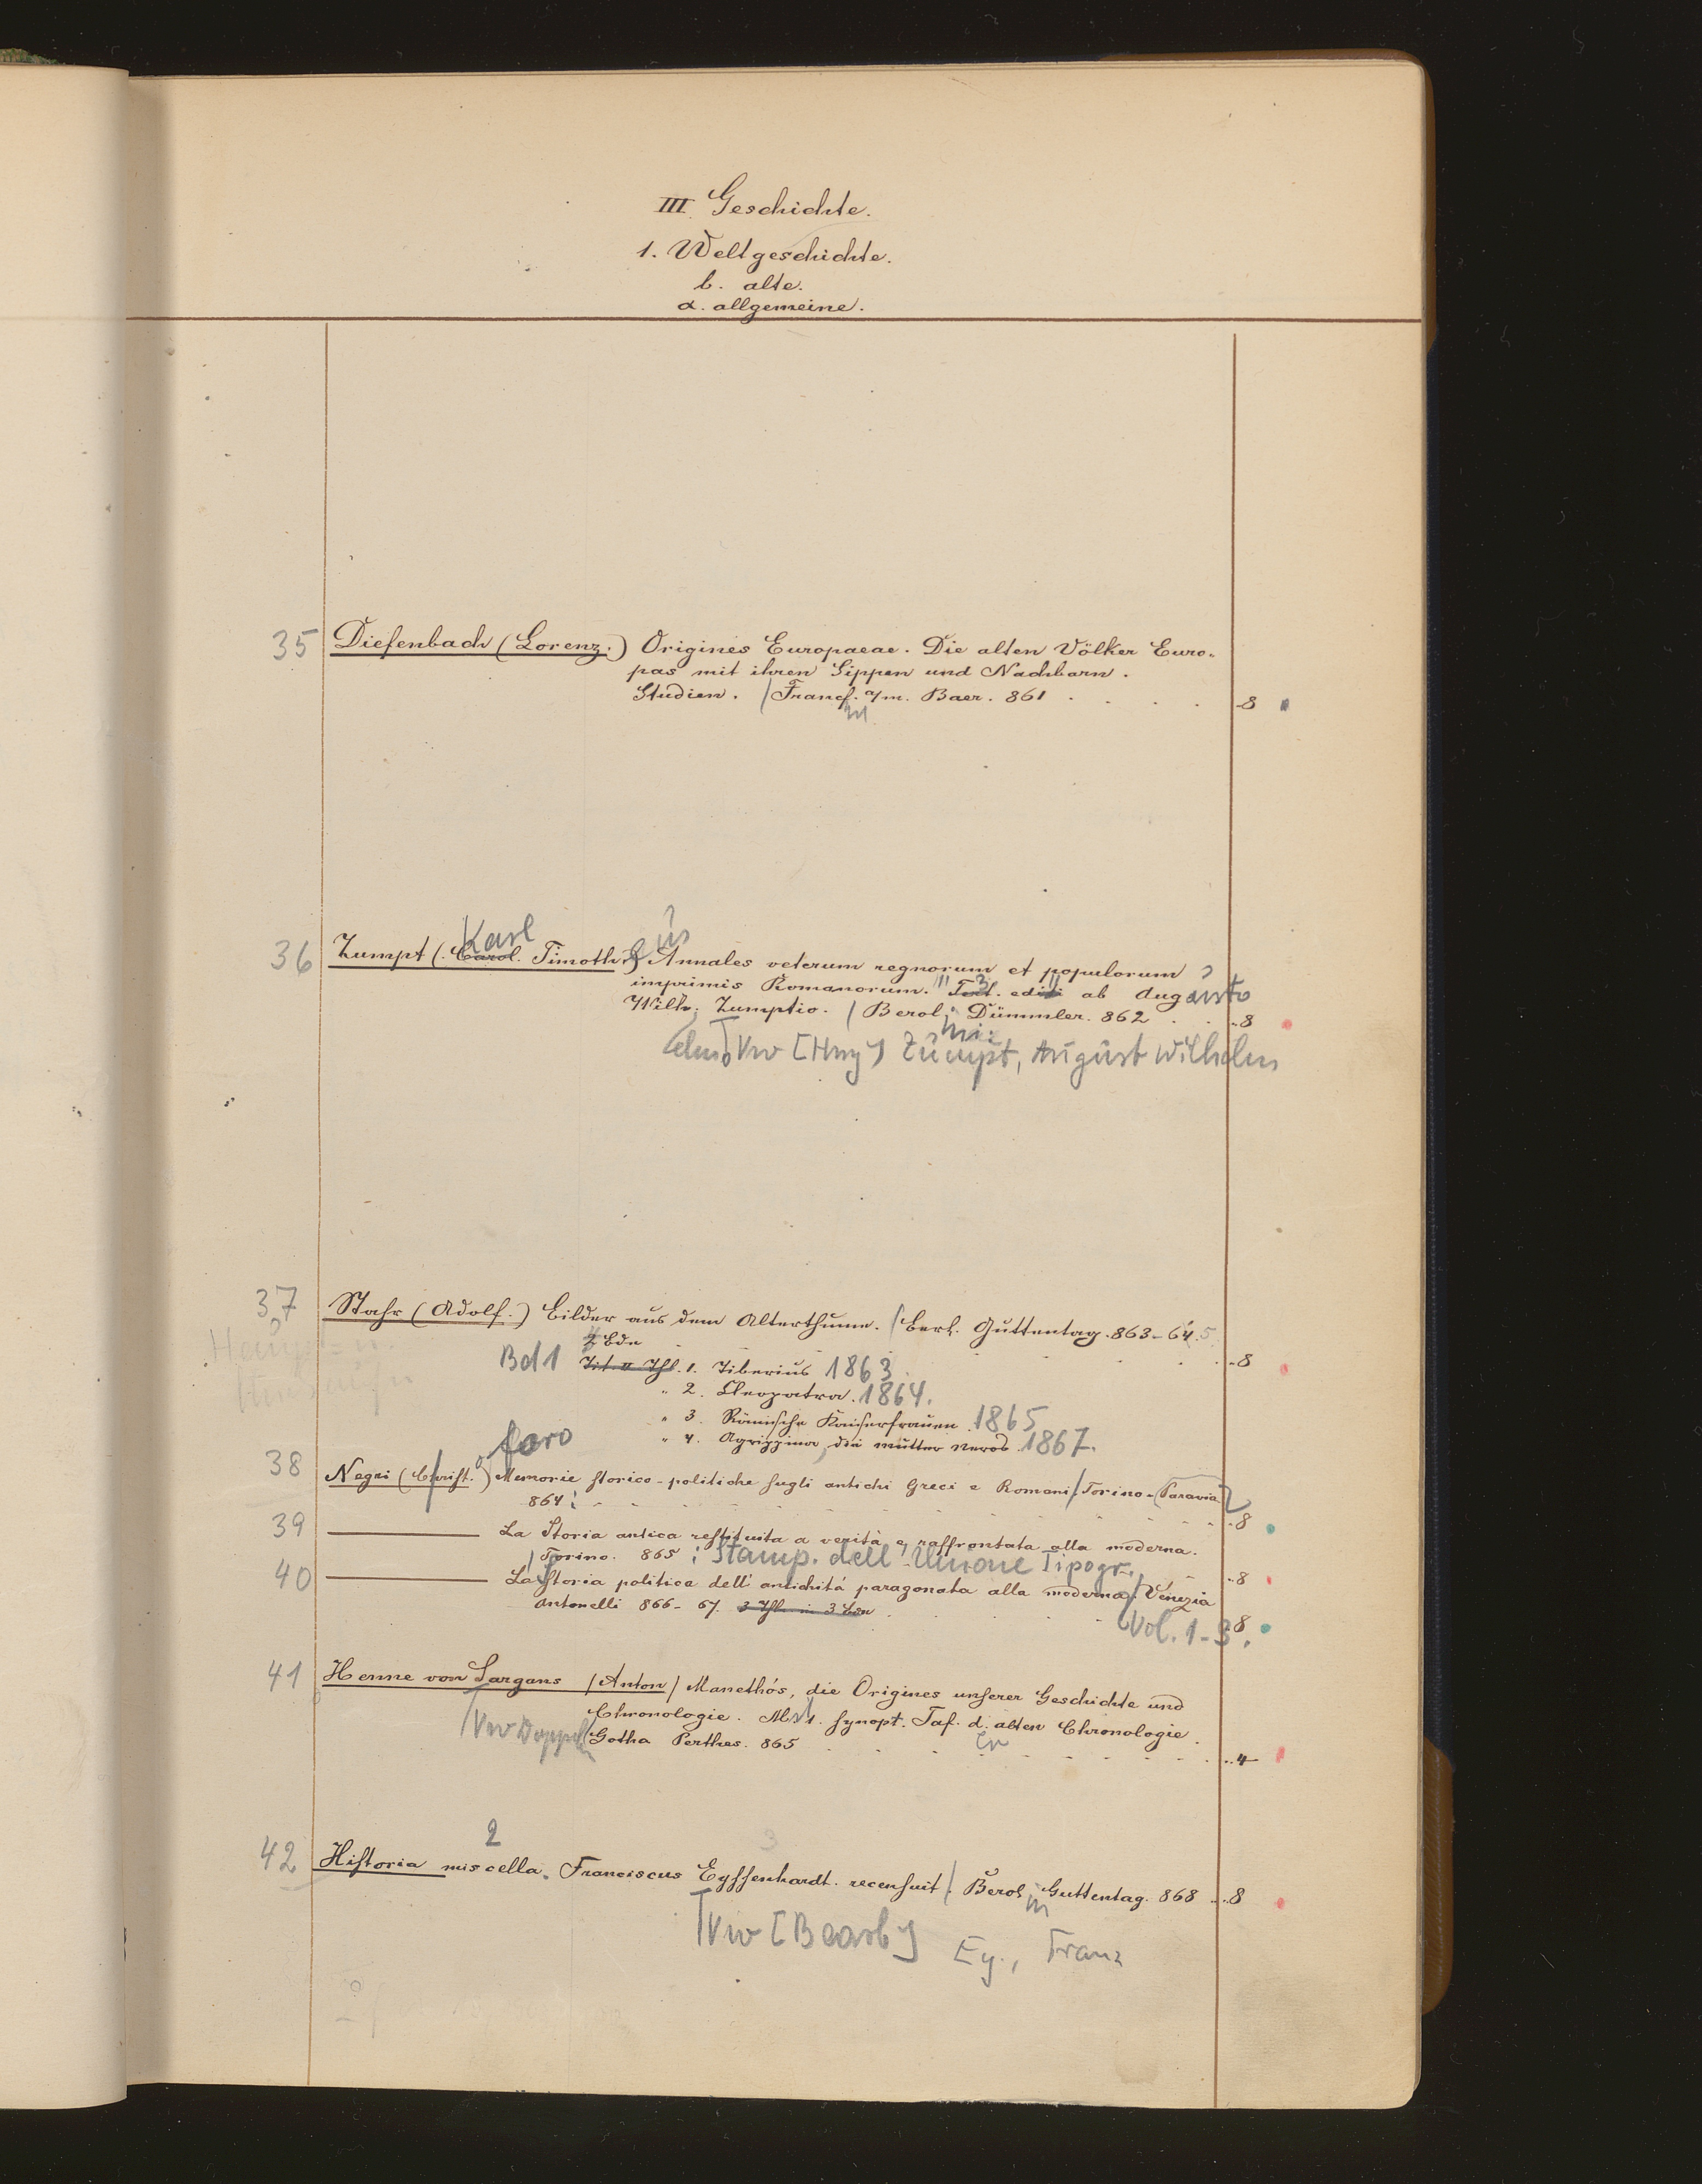 III Geschichte.
1. Weltgeschichte.
b. alte.
α. allgemeine.
35 Diefenbach (Lorenz.) Origines Europaeae. Die alten Völker Euro-
pas mit ihren Sippen und Nachbarn.
Studien. / Francf. a/m. Baer. 861 . . . . 8
Karl us
36 Zumpt (Carol. Timoth.) Annales veterum regnorum et populorum
imprimis Romanorum. 3 edi ab Augusto
Wilh. Zumptio. / Berol. Dümmler. 862 . . 8
Vw [Hrsg] Zumpt, August Wilhelm
37 Stahr (Adolf.) Bilder aus dem Alterthume. / Berl. Guttentag. 863-64. 5
Bde . . . 8
Bd 1 Tit. u Thl. 1. Tiberius 1863
" 2. Cleopatra. 1864.
" 3. Römische Kaiserfrauen 1865
" 4. Agrippina, die Mutter Neros. 1867.
foro
38 Negri (Christ.) Memorie storico-politiche sugli antichi Greci e Romani / Torino. Paravia
864 . . . 8
39 ——— La Storia antica restituita a verità e raffrontata alla moderna.
/ Torino. 865 : Stamp. dell' Unione Tipogr. . 8
40 ——— La Storia politica dell' antichitá paragonata alla moderna / Venezia
Antonelli 866-67. 3 Thl. in 3 Bdn . . . 8
Vol. 1-3.
41 Henne von Sargans / Anton / Manethós, die Origines unserer Geschichte und
Chronologie. Mit 1. synopt. Taf. d. alten Chronologie.
Vw Doppel / Gotha Perthes. 865 . . . 4
2
42 Historia miscella. Franciscus Eyssenhardt. recensuit / Berol. Guttentag. 868 . . 8
Vw [Bearb] Ey., Franz